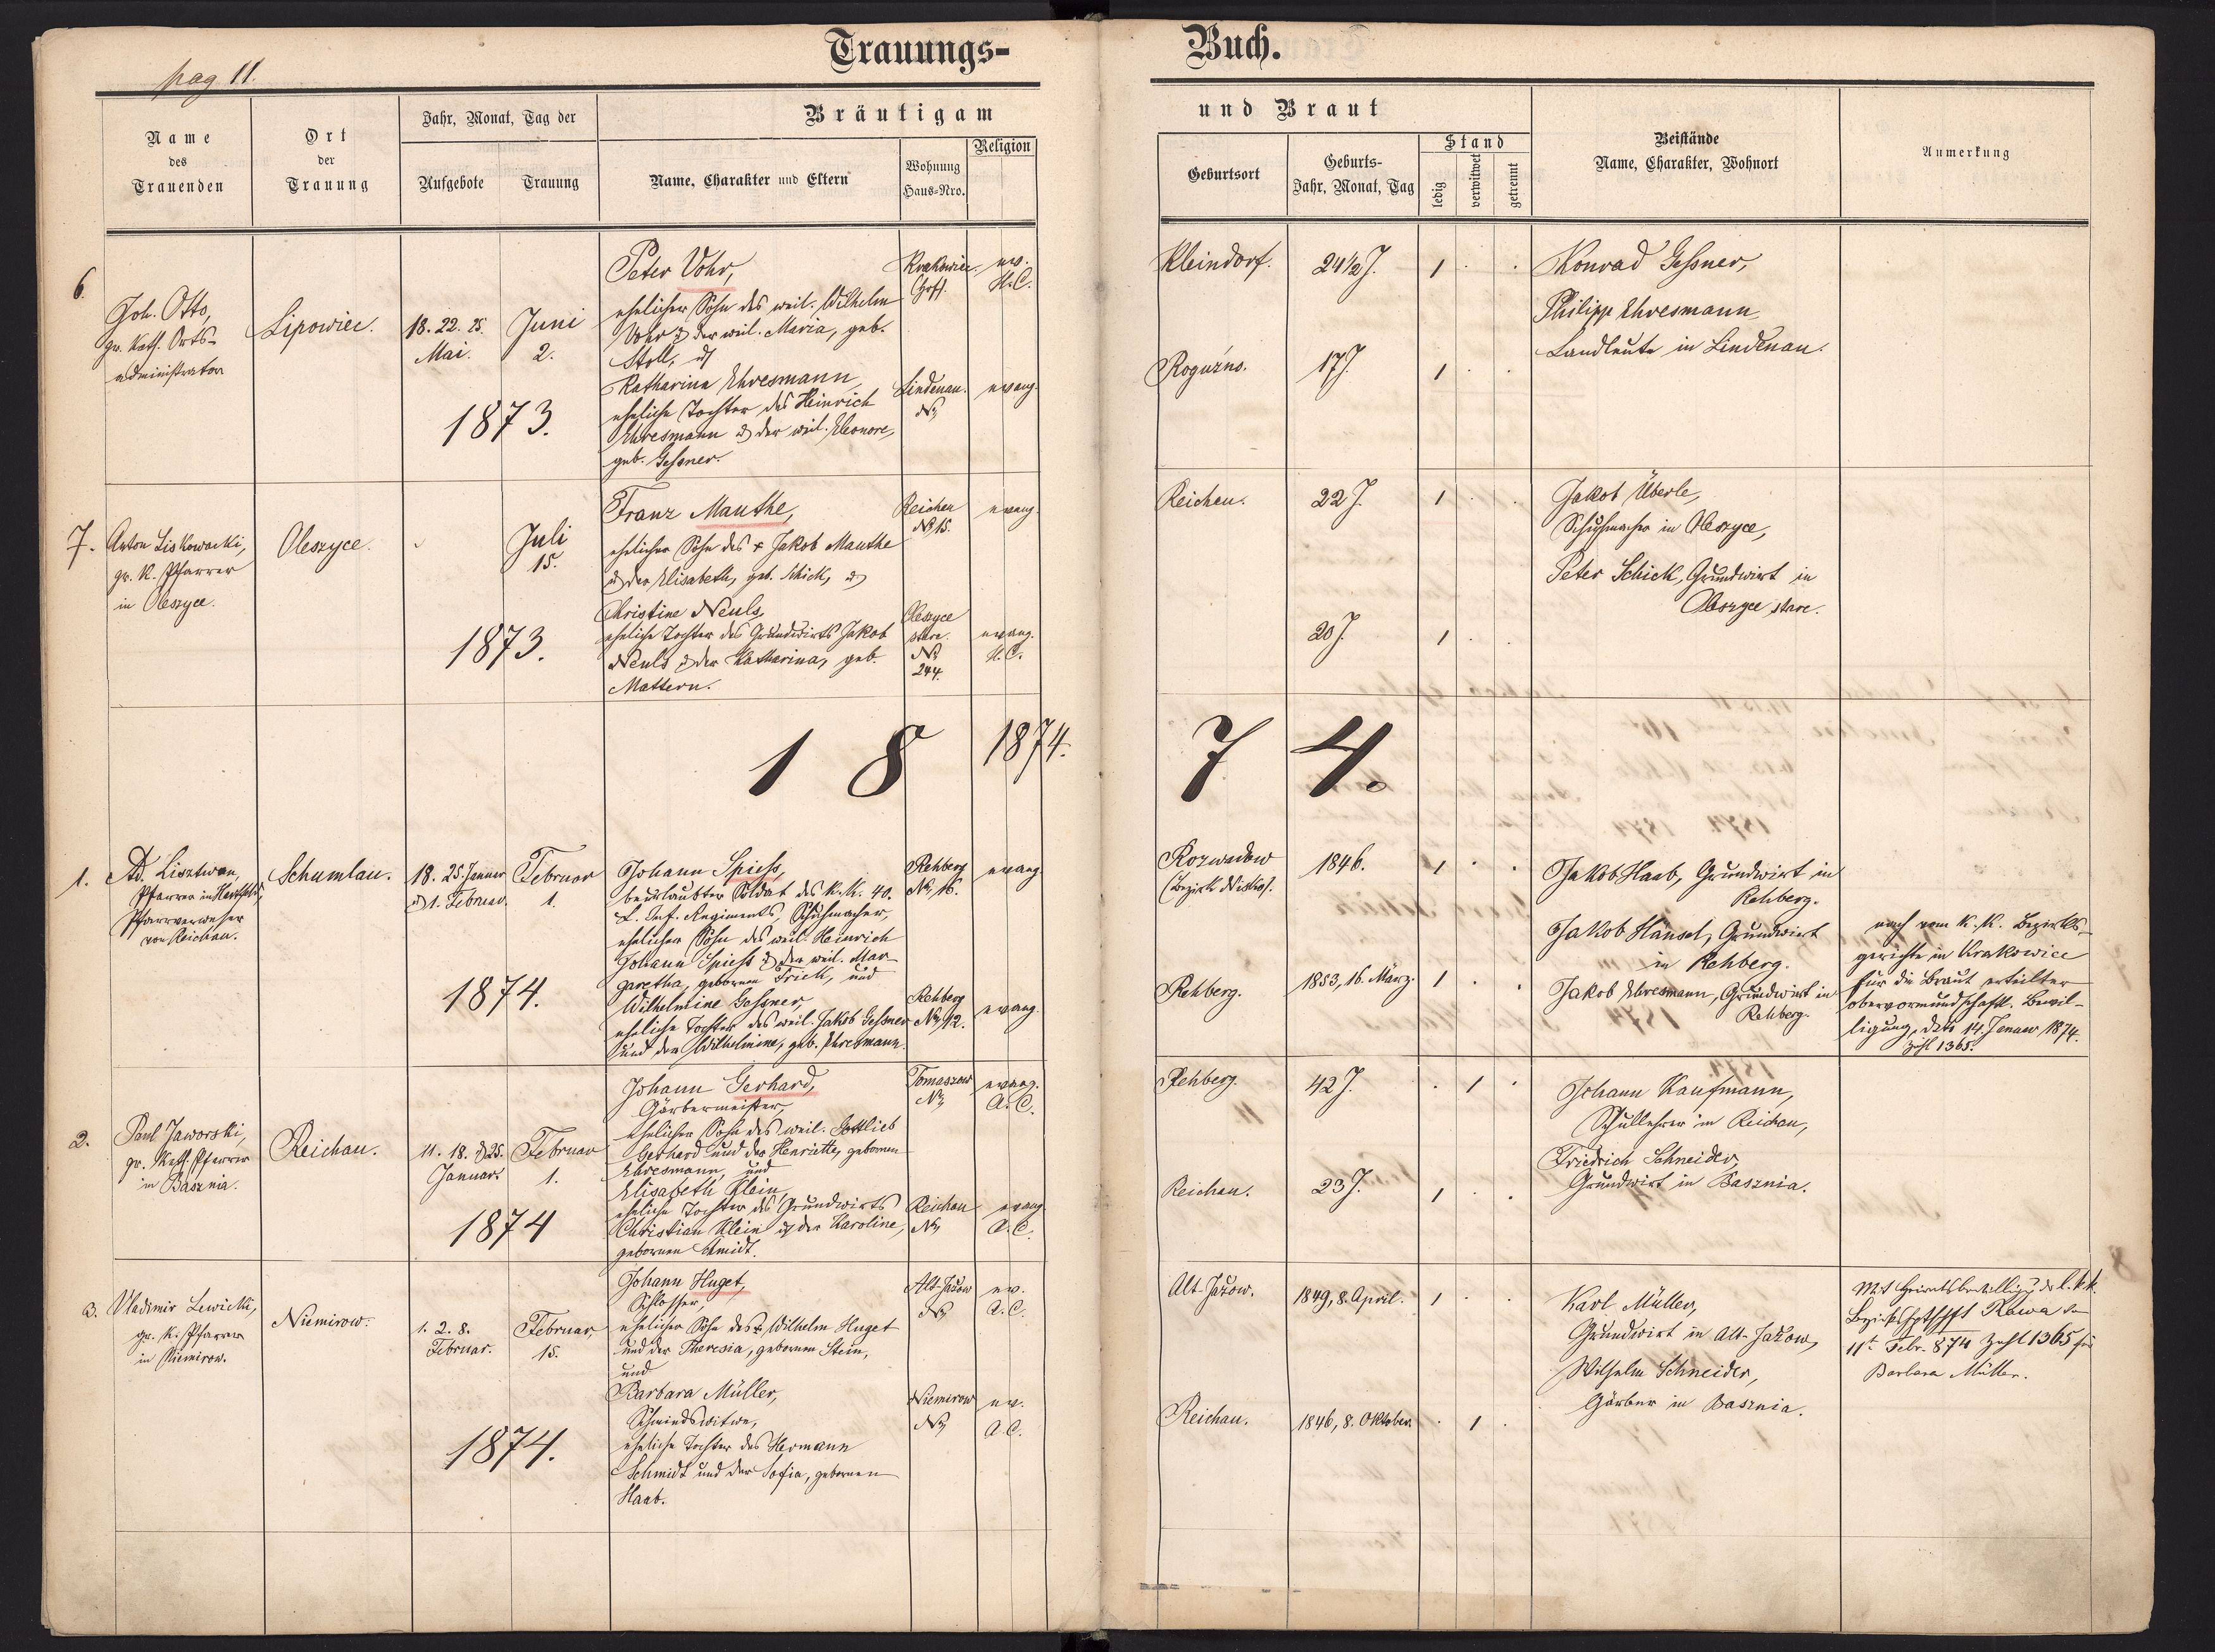 pag 11.
Trauungs-
Buch.
Name
des
Trauenden
Ort
der
Trauung
Jahr, Monat, Tag der
Aufgebote
Trauung
Bräutigam
Name, Charakter und Eltern
Wohnung
Haus-Nro.
Religion
und Braut
Geburtsort
Geburts-
Jahr, Monat, Tag
Stand
ledig
verwitwet
getrennt
Beistände
Name, Charakter, Wohnort
Anmerkung
6.
Joh. Otto,
gr. kath. Orts-
administrator
Lipowiec.
18. 22. 25.
Mai.
Juni
2.
1873.
Peter Vohr,
ehelicher Sohn des weil. Wilhelm
Vohr & der weil. Maria, geb.
Stoll, &
Katharina Ehresmann
eheliche Tochter des Heinrich
Ehresmann & der weil. Eleonore,
geb. Gessner.
Krakowiec
Lindenau.
No
ev.
H.C.
evang.
Kleindorf.
24 1/2 J.
1
Roguzno.
17 J.
1
Konrad Gessner,
Philipp Ehresmann
Landleute in Lindenau.
7.
Anton Liskowacki,
gr. k. Pfarrer
in Oleszyce.
Oleszyce.
Juli
15.
1873.
Franz Mauthe,
ehelicher Sohn des + Jakob Mauthe
& der Elisabeth, geb. Schick, &
Christine Neuls,
eheliche Tochter des Grundwirts Jakob
Neuls & der Katharina, geb.
Mattern.
Reichau
No 15.
Oleszyce
stare.
No
244.
evang.
evang.
H.C.
Reichau.
22 J.
1
20 J.
1
Jakob Überle,
Schuhmacher in Oleszyce,
Peter Schick, Grundwirt in
Oleszyce stare.
1 8
1874.
7 4.
1.
Ad. Lisztwan,
Pfarrer in
Pfarrverweser
von Reichau.
Schumlau.
18. 25. Januar
& 1. Februar.
Februar
1.
1874.
Johann Spiess,
beurlaubter Soldat des k.k. 40.
L. Inf. Regiments, Schuhmacher,
ehelicher Sohn des weil. Heinrich
Johann Spiess & der weil. Mar-
garetha, gebornen Frick, und
Wilhelmine Gessner,
eheliche Tochter des weil. Jakob Gessner
und der Wilhelmine, geb. Ehresmann.
Rehberg
No 16.
Rehberg
No 12.
evang.
evang.
Rozwadow
(Bezirk Nisko).
1846.
1
Rehberg.
1853, 16. März.
1
Jakob Haab, Grundwirt in
Rehberg.
Jakob Hänsel, Grundwirt
in Rehberg.
Jakob Ehresmann, Grundwirt in
Rehberg.
nach vom k.k. Bezirks-
gerichte in Krakowiec
für die Braut erteilter
obervormundschaftl. Bewil-
ligung, dto 14. Januar 1874.
Zahl 1365.
2.
Paul Jaworski,
gr. kath. Pfarrer
in Basznia.
Reichau.
11. 18. & 25.
Januar.
Februar
1.
1874
Johann Gerhard,
Gärbermeister,
ehelicher Sohn des weil. Gottlieb
Gerhard und der Henriette, gebornen
Ehresmann, und
Elisabeth Klein
eheliche Tochter des Grundwirts
Christian Klein & der Karoline,
gebornen Schmidt.
Tomaszow
No
Reichau
No
evang.
A.C.
evang.
A.C.
Rehberg.
42 J.
1
Reichau.
23 J.
1
Johann Kaufmann,
Schullehrer in Reichau,
Friedrich Schneider,
Grundwirt in Basznia.
3.
Vladimir Lewicki,
gr. k. Pfarrer
in Niemirow.
Niemirow.
1. 2. 8.
Februar.
Februar,
15.
1874.
Johann Huget,
Schlosser,
ehelicher Sohn des + Wilhelm Huget
und der Theresia, gebornen Stein,
und
Barbara Müller,
Schmiedswitwe,
eheliche Tochter des Hermann
Schmidt und der Sofia, gebornen
Haab.
Alt-Jazow
No
Niemirow
No
ev.
A.C.
ev.
A.C.
Alt-Jazow.
1849, 8. April.
1
Reichau.
1846, 8. Oktober.
1
Karl Müller,
Grundwirt in Alt-Jazow,
Wilhelm Schneider,
Gärber in Basznia.
Mit Heiratsbewilligung der k.k.
Bezirkshptschft Rawa
11t Febr. 874 Zahl 1365 für
Barbara Müller.